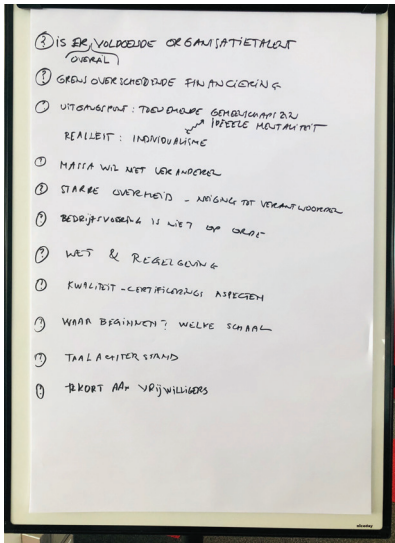 ? IS ER VOLDOENDE ORGANISATIETALENT
OVERAL
? GRENSOVERSCHEIDENDE FINANCIERING
UITGANGSPUNT: TOENEMENDE GEMEENSCHAPSZIN
IDEELE MENTALITEIT
REALLEIT: INDIVIDUALISME
! MASSA WIL NIET VERANDEREN
? STARRE OVERHEID - NEIGING TOT VERANTWOORDEN
? BEDRIJFSVOERING IS NIET OP ORDE
? WET & REGELGEVING
! KWALITEIT - CERTIFICERINGS ASPECTEN
! WAAR BEGINNEN? WELKE SCHAAL
! TAALACHTERSTAND
! TEKORT AAN VRIJWILLIGERS